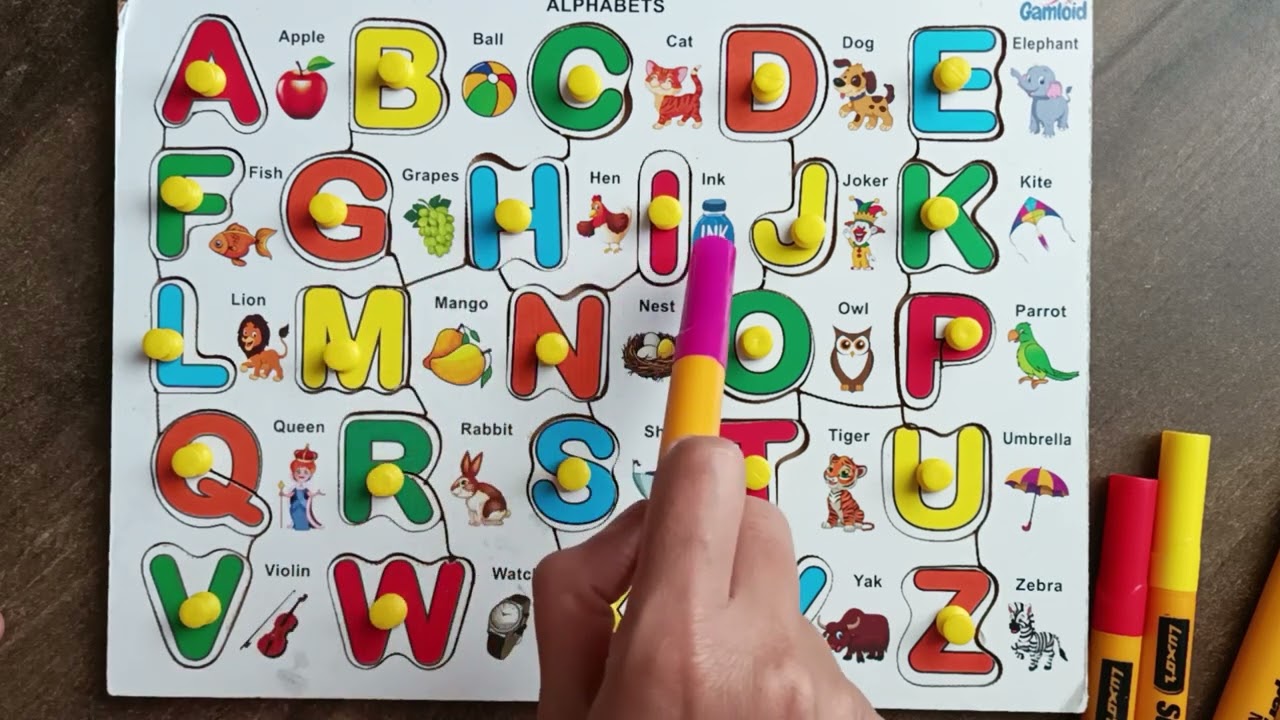 ALPHABETS
Gamloid
A Apple B Ball C Cat D Dog E Elephant
F Fish G Grapes H Hen I Ink J Joker K Kite
INK
L Lion M Mango N Nest O Owl P Parrot
Q Queen R Rabbit S T Tiger U Umbrella
V Violin W Yak Z Zebra
Luxor
Luxor